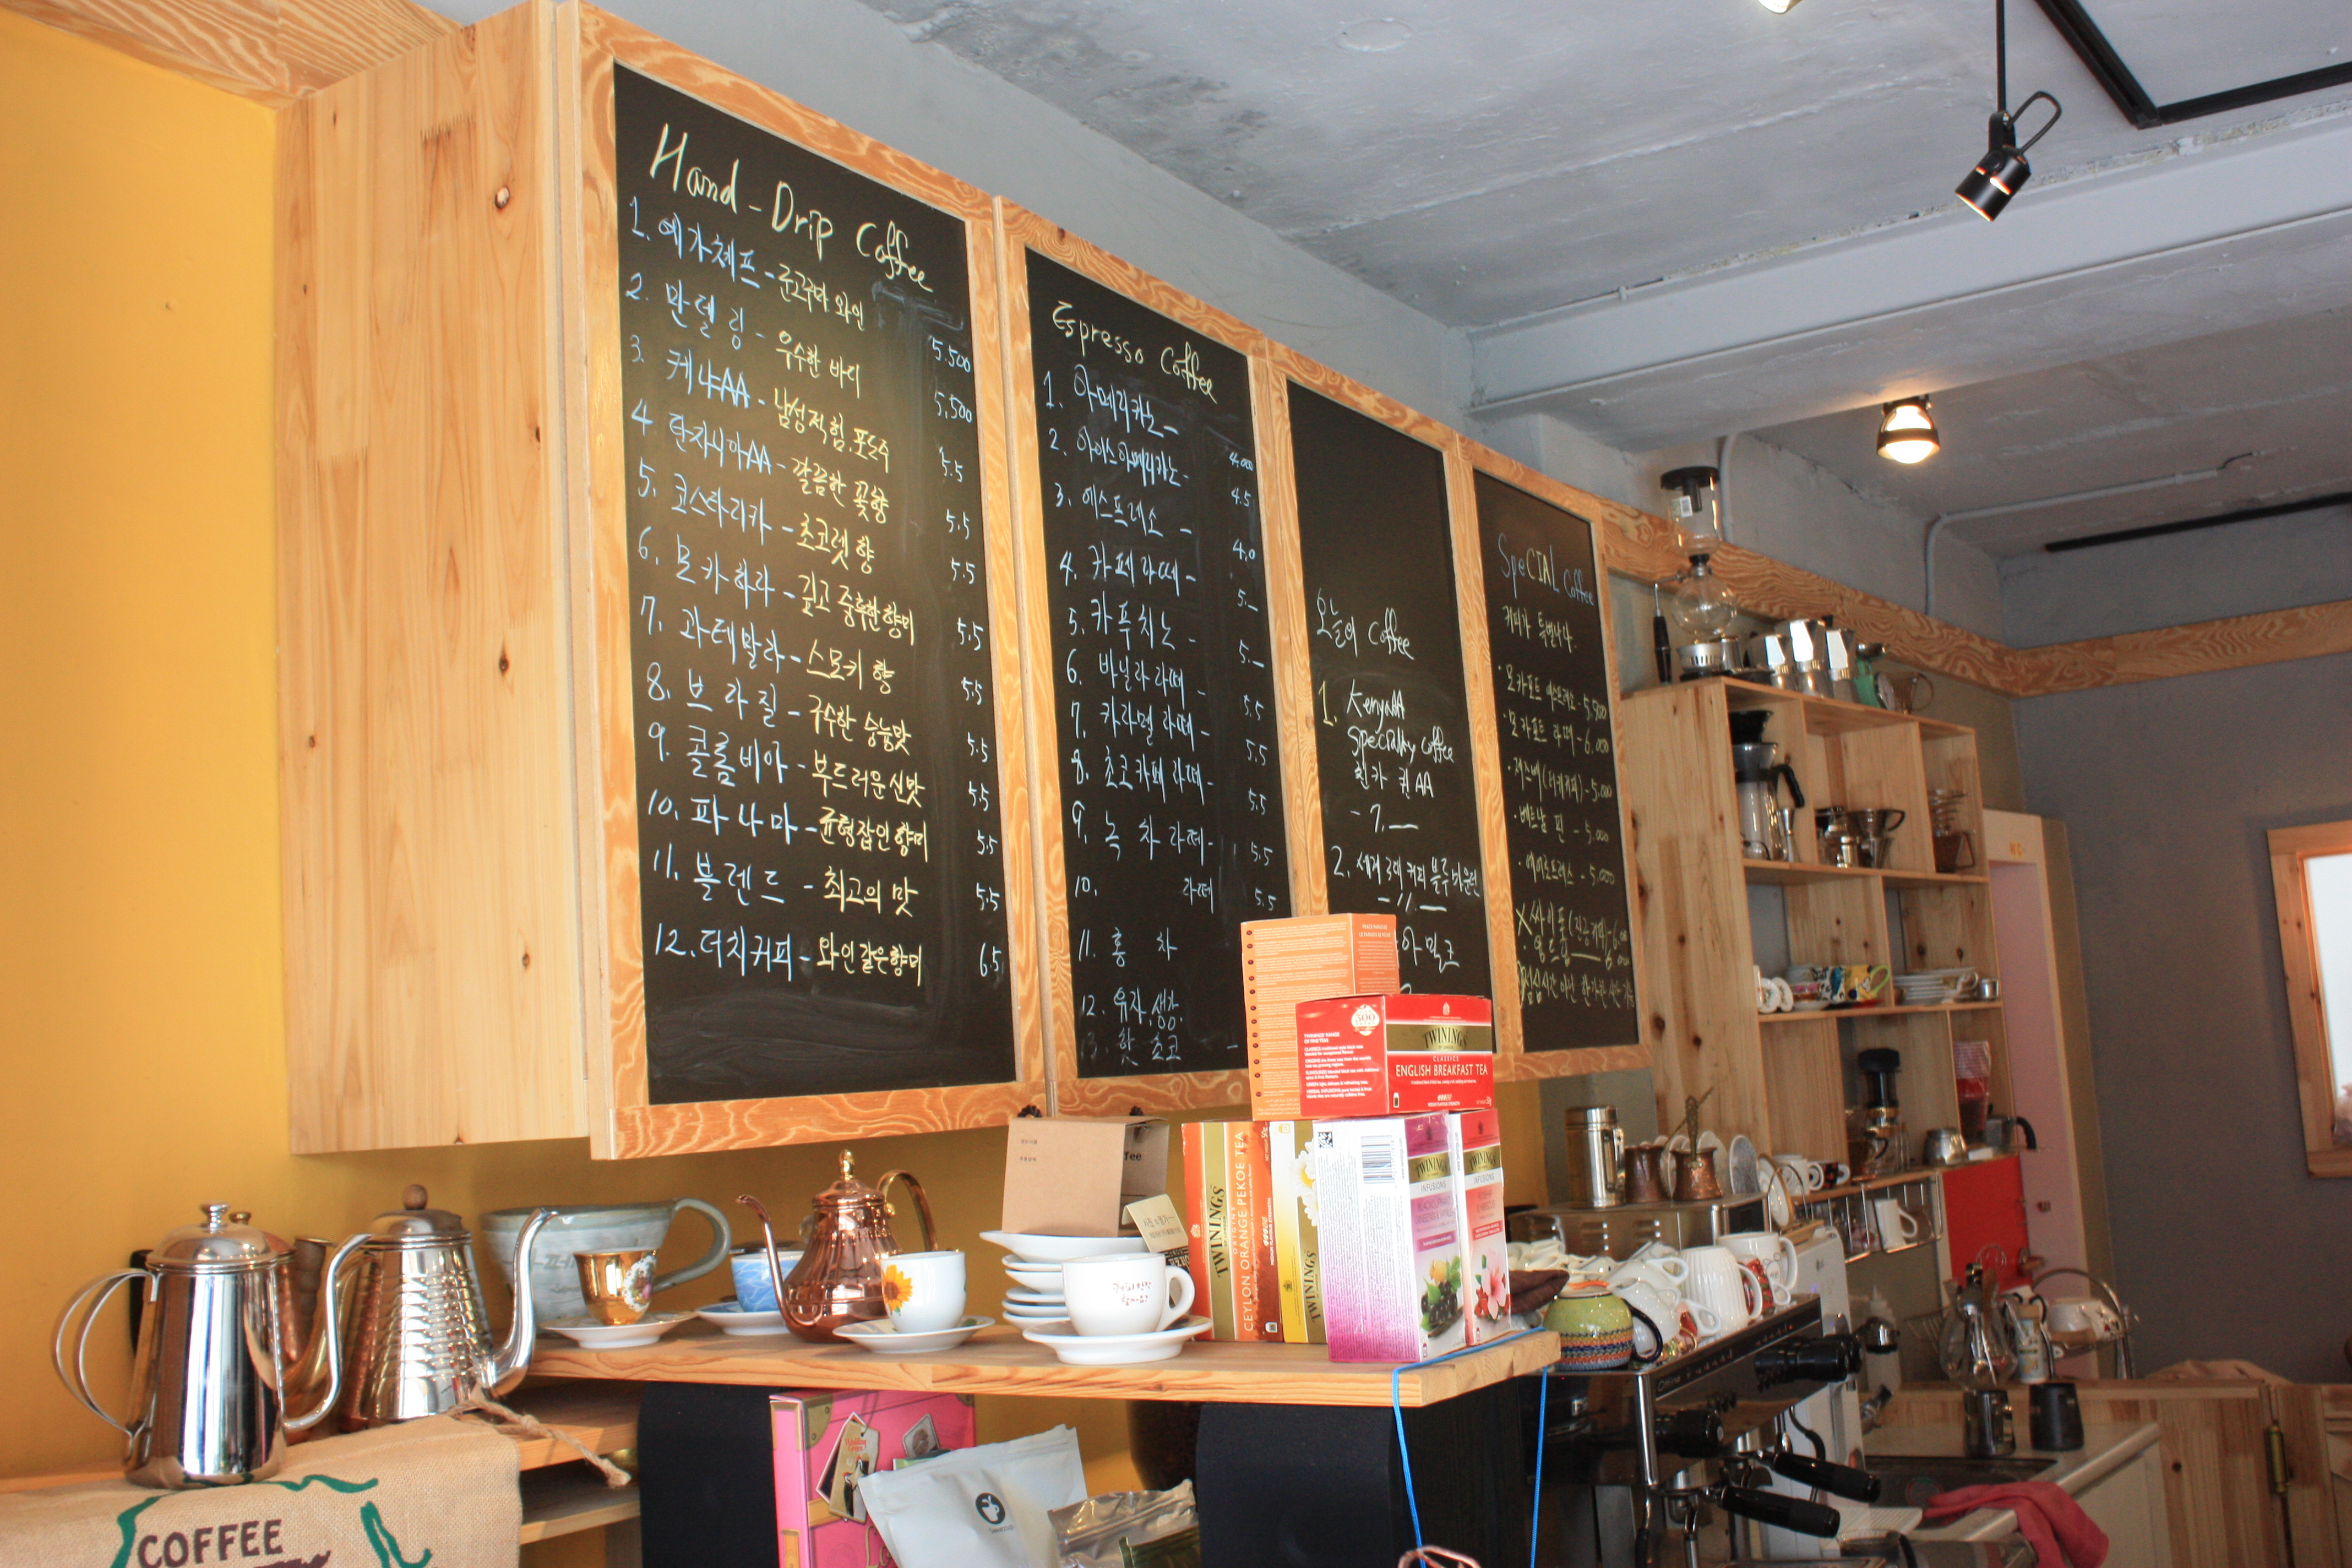 Hand-Drip Coffee
1. 예가체프 - 군고구마 와인 5.500
2. 만델링 - 우수한 바디 5.500
3. 케냐AA - 남성적힘.포도주 5.5
4 탄자니아AA - 깔끔한 꽃향 5.5
5. 코스타리카 - 초코렛 향 5.5
6. 모카하라 - 깊고 중후한 향미 5.5
7. 과테말라 - 스모키 향 5.5
8. 브라질 - 구수한 숭늉맛 5.5
9. 콜롬비아 - 부드러운 신맛 5.5
10. 파나마 - 균형잡인 향미 5.5
11. 블렌드 - 최고의 맛 5.5
12. 더치커피 - 와인같은향미 6.5
Espresso Coffee
1. 아메리카노 - 4,000
2. 아이스아메리카노 - 4.5
3. 에스프레소 - 4.0
4. 카페라떼 - 5.-
5. 카푸치노 - 5.-
6. 바닐라라떼 - 5.5
7. 카라멜라떼 - 5.5
8. 초코카페라떼 - 5.5
9. 녹차라떼 - 5.5
10. 라떼 5.5
11. 홍차
12. 유자.생강.
13. 핫초코 -
오늘의 Coffee
1. KenyaAA
Specialty coffee
친카 퀸 AA
- 7.—
2. 세계 3대 커피 블루마운틴
- 11.—
아밀크
SpeCIAL Coffee
커피가 특별나다.
·모카포트 에스프레소 - 5,500
·모카포트 라떼 - 6.000
·체즈베(터키커피) - 5.000
·베트남 핀 - 5.000
·에어로프레스 - 5.000
싸이폰(진공커피) - 6.000
TWININGS
CLASSICS
ENGLISH BREAKFAST TEA
TWININGS
ORIGINS
CEYLON ORANGE PEKOE TEA
TWININGS
TWININGS
INFUSIONS
TWININGS
INFUSIONS
COFFEE